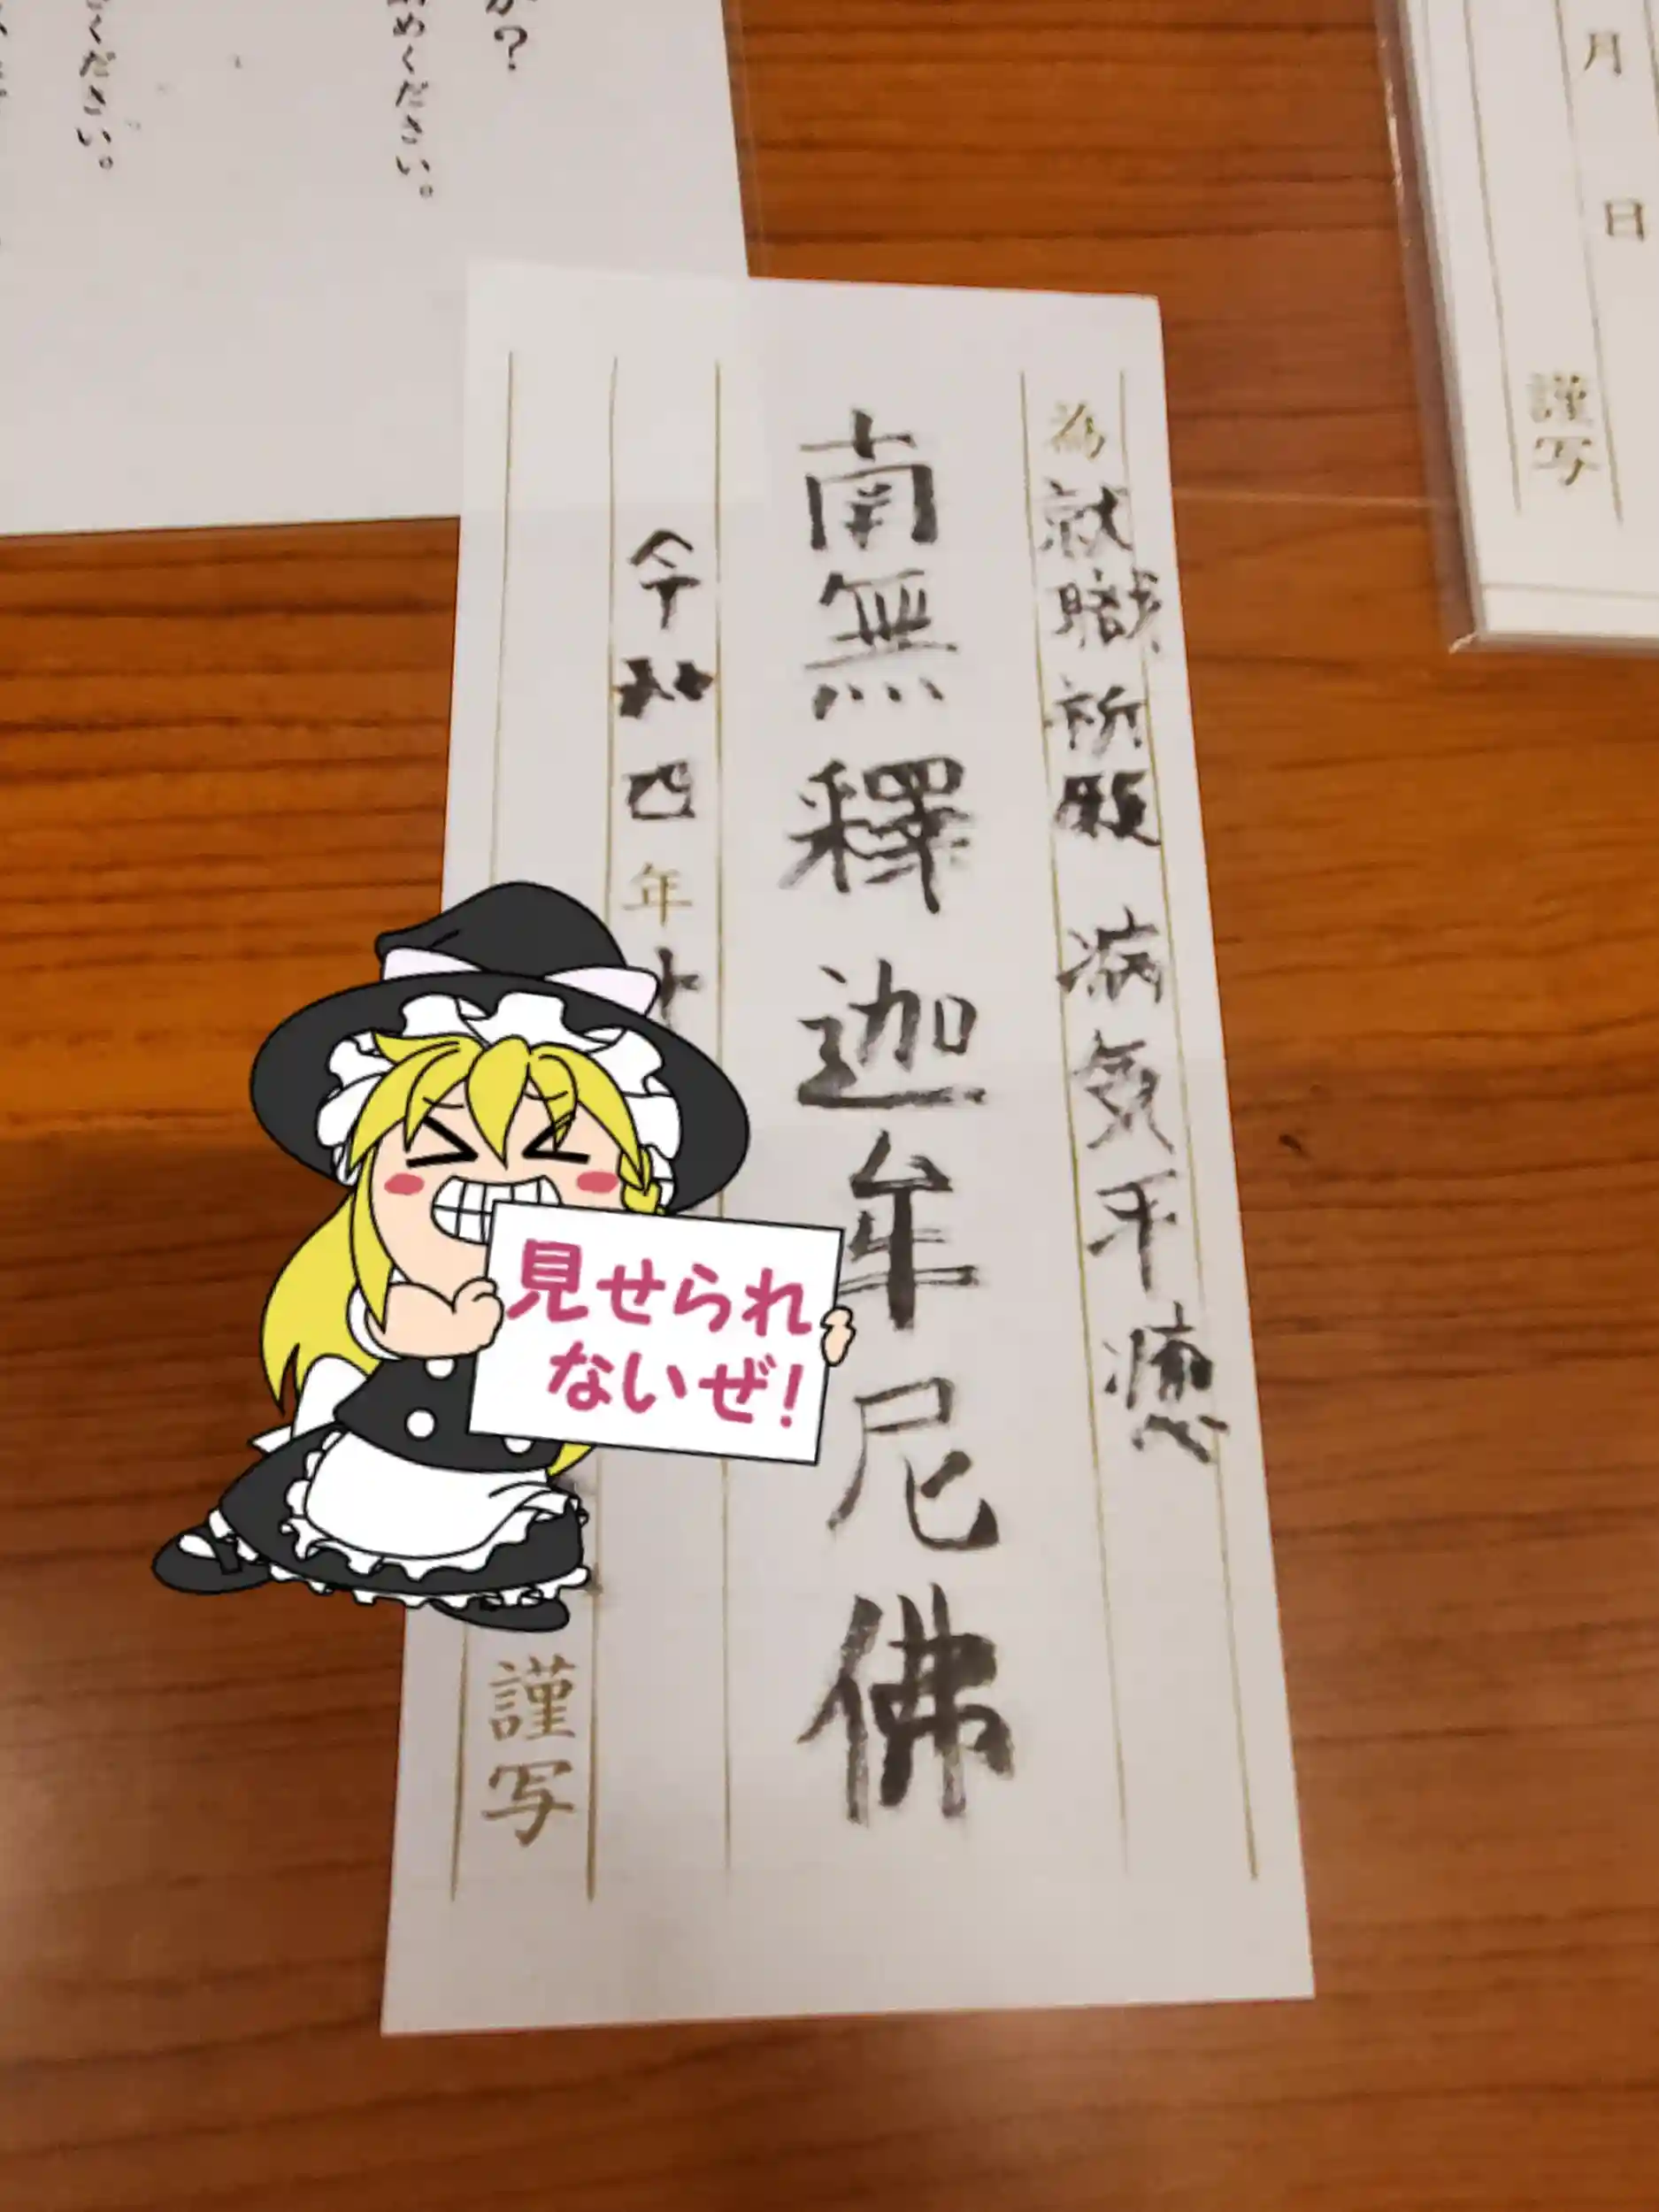 為就職祈願 病気平癒
南無釋迦牟尼佛
令和四年十
謹写
見せられ
ないぜ!
か?
めください。
ください。
月 日
謹写